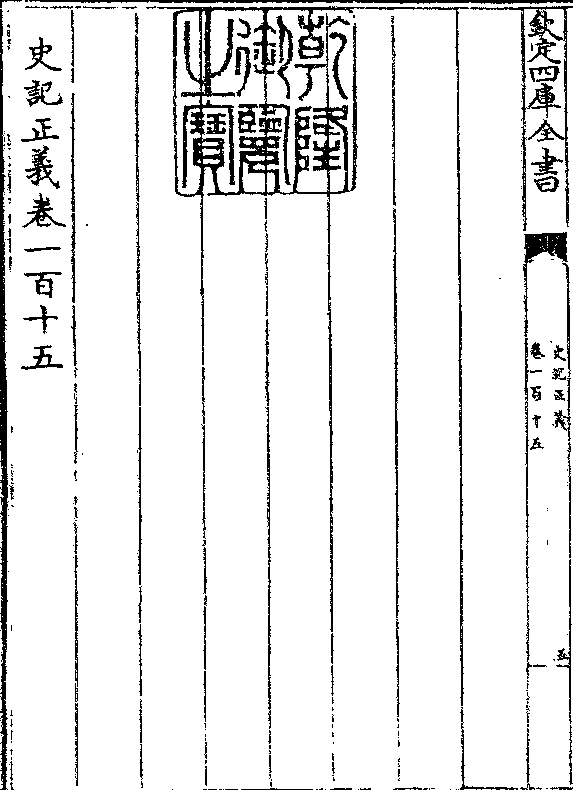 欽定四庫全書
史記正義
卷一百十五
五
乾隆御覽之寶
史記正義卷一百十五